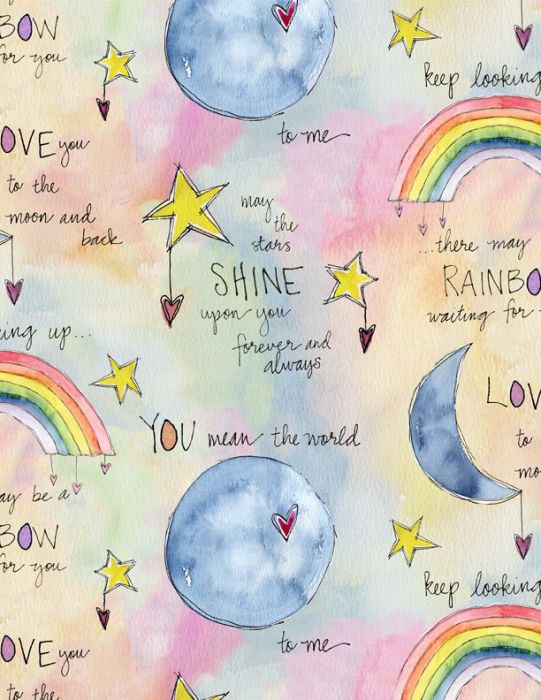 BOW
for you
OVE you
to the
moon and
back
ing up...
ay be a
BOW
for you
OVE you
to the
to me
may
the
stars
SHINE
upon you
forever and
always
YOU mean the world
to me
keep looking
...there may
RAINBO
waiting for
LOV
to
mo
keep looking